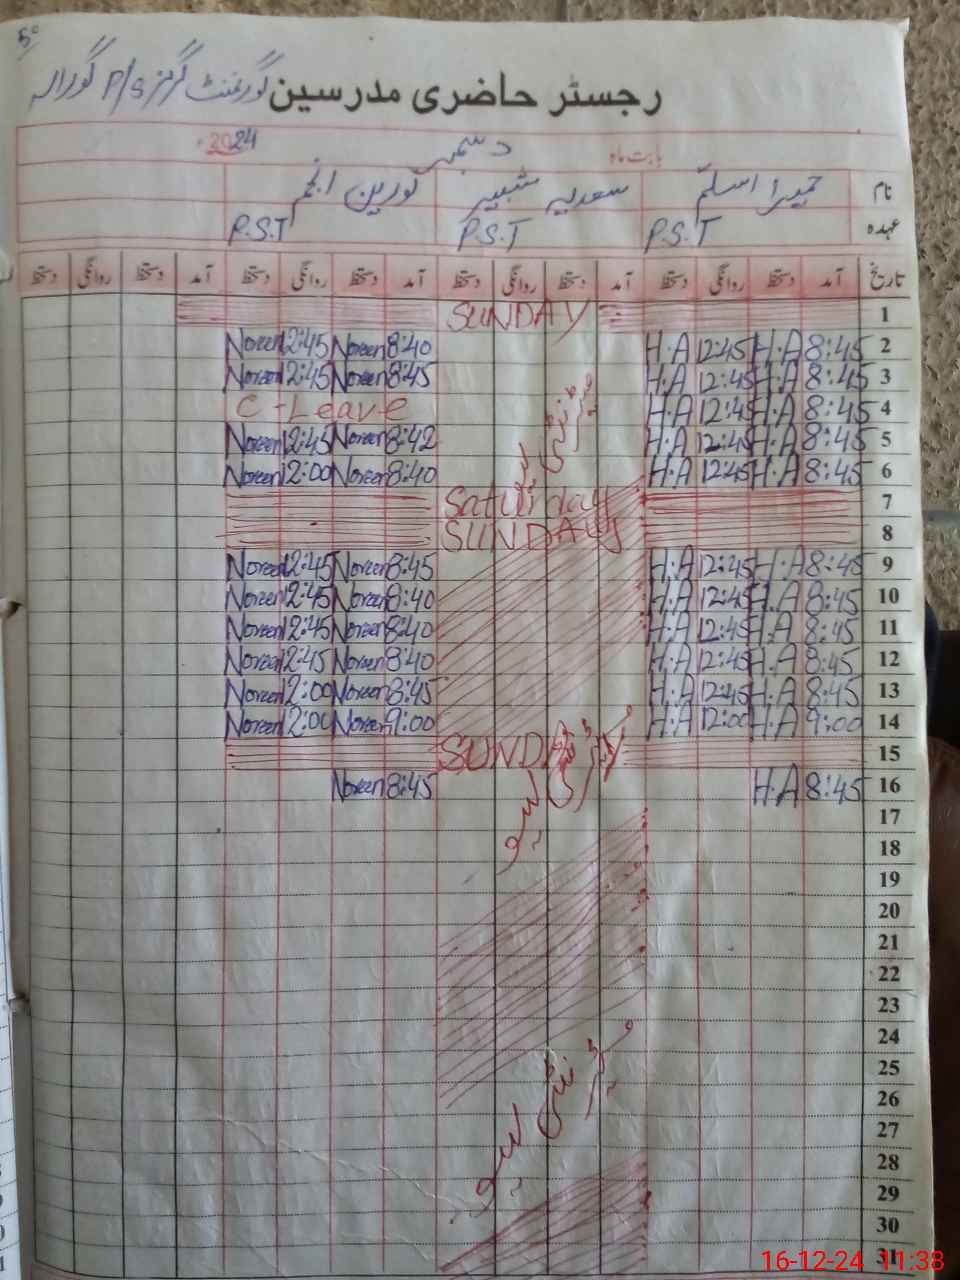 رجسٹر حاضری مدرسین گورنمنٹ گرلز P/S گورالہ
بابت ماہ دسمبر 2024
نام حمیرا اسلم سعدیہ شبیر نورین انجم
عہدہ P.S.T P.S.T P.S.T
تاریخ آمد دستخط روانگی دستخط آمد دستخط روانگی دستخط آمد دستخط روانگی دستخط آمد دستخط روانگی دستخط
1 SUNDAY
2 8:45 H.A 12:45 H.A 8:40 Noreen 12:45 Noreen
3 8:45 H.A 12:45 H.A 8:45 Noreen 12:45 Noreen
4 8:45 H.A 12:45 H.A C-Leave
5 8:45 H.A 12:45 H.A 8:42 Noreen 12:45 Noreen
6 8:45 H.A 12:45 H.A 8:40 Noreen 12:00 Noreen
میٹرنٹی لیو
7 Saturday
8 SUNDAY
9 8:45 H.A 12:45 H.A 8:45 Noreen 12:45 Noreen
10 8:45 H.A 12:45 H.A 8:40 Noreen 12:45 Noreen
11 8:45 H.A 12:45 H.A 8:40 Noreen 12:45 Noreen
12 8:45 H.A 12:45 H.A 8:40 Noreen 12:45 Noreen
13 8:45 H.A 12:45 H.A 8:45 Noreen 12:00 Noreen
14 9:00 H.A 12:00 H.A 9:00 Noreen 12:00 Noreen
15 SUNDAY
میٹرنٹی لیو
16 8:45 H.A 8:45 Noreen
17
18
19
20
21
22
23
24
25
26
میٹرنٹی لیو
27
28
29
30
31
16-12-24 11:38